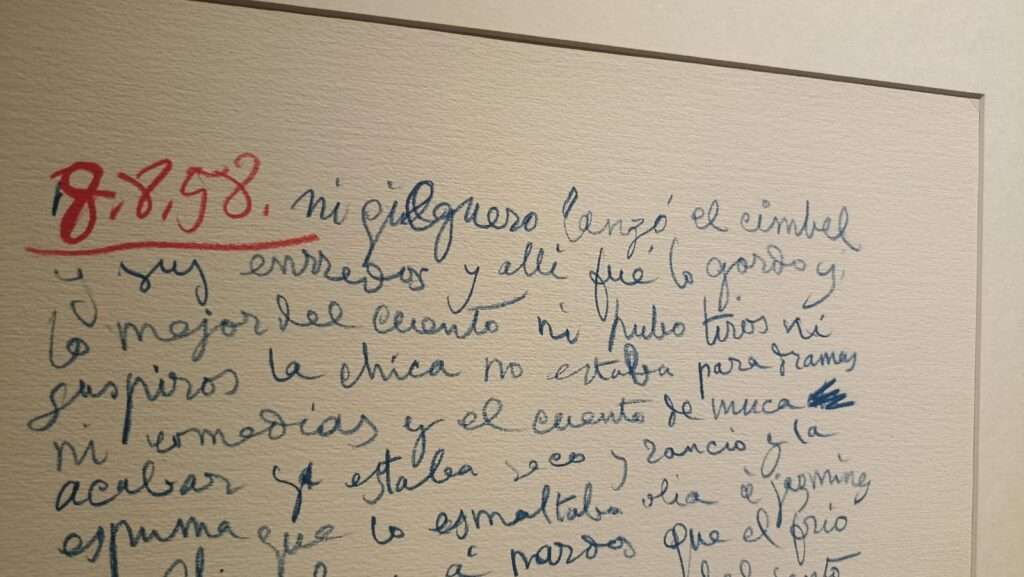 8.8.58. ni gilguero lanzó el cimbel
y sus enrredos y alli fué lo gordo y
lo mejor del cuento ni hubo tiros ni
suspiros la chica no estaba para dramas
ni comedias y el cuento de nunca
acabar ya estaba seco y rancio y la
espuma que lo esmaltaba olia à jasmins
á nardos que el frio